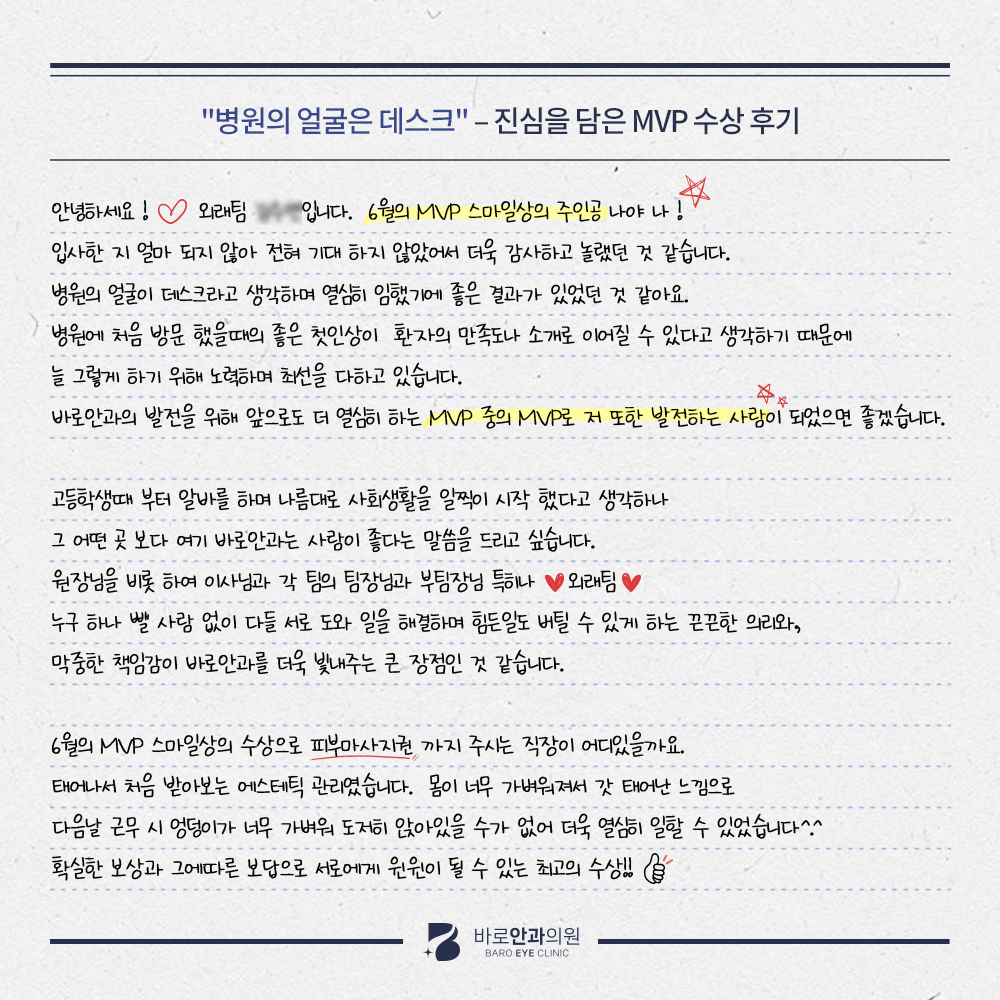 "병원의 얼굴은 데스크" – 진심을 담은 MVP 수상 후기
안녕하세요 ! 외래팀 입니다. 6월의 MVP 스마일상의 주인공 나야 나 !
입사한 지 얼마 되지 않아 전혀 기대 하지 않았어서 더욱 감사하고 놀랬던 것 같습니다.
병원의 얼굴이 데스크라고 생각하며 열심히 임했기에 좋은 결과가 있었던 것 같아요.
병원에 처음 방문 했을때의 좋은 첫인상이 환자의 만족도나 소개로 이어질 수 있다고 생각하기 때문에
늘 그렇게 하기 위해 노력하며 최선을 다하고 있습니다.
바로안과의 발전을 위해 앞으로도 더 열심히 하는 MVP 중의 MVP로 저 또한 발전하는 사람이 되었으면 좋겠습니다.
고등학생때 부터 알바를 하며 나름대로 사회생활을 일찍이 시작 했다고 생각하나
그 어떤 곳 보다 여기 바로안과는 사람이 좋다는 말씀을 드리고 싶습니다.
원장님을 비롯 하여 이사님과 각 팀의 팀장님과 부팀장님 특히나 외래팀
누구 하나 뺄 사람 없이 다들 서로 도와 일을 해결하며 힘든일도 버틸 수 있게 하는 끈끈한 의리와,
막중한 책임감이 바로안과를 더욱 빛내주는 큰 장점인 것 같습니다.
6월의 MVP 스마일상의 수상으로 피부마사지권 까지 주시는 직장이 어디있을까요.
태어나서 처음 받아보는 에스테틱 관리였습니다. 몸이 너무 가벼워져서 갓 태어난 느낌으로
다음날 근무 시 엉덩이가 너무 가벼워 도저히 앉아있을 수가 없어 더욱 열심히 일할 수 있었습니다^.^
확실한 보상과 그에따른 보답으로 서로에게 윈윈이 될 수 있는 최고의 수상!!
바로안과의원
BARO EYE CLINIC